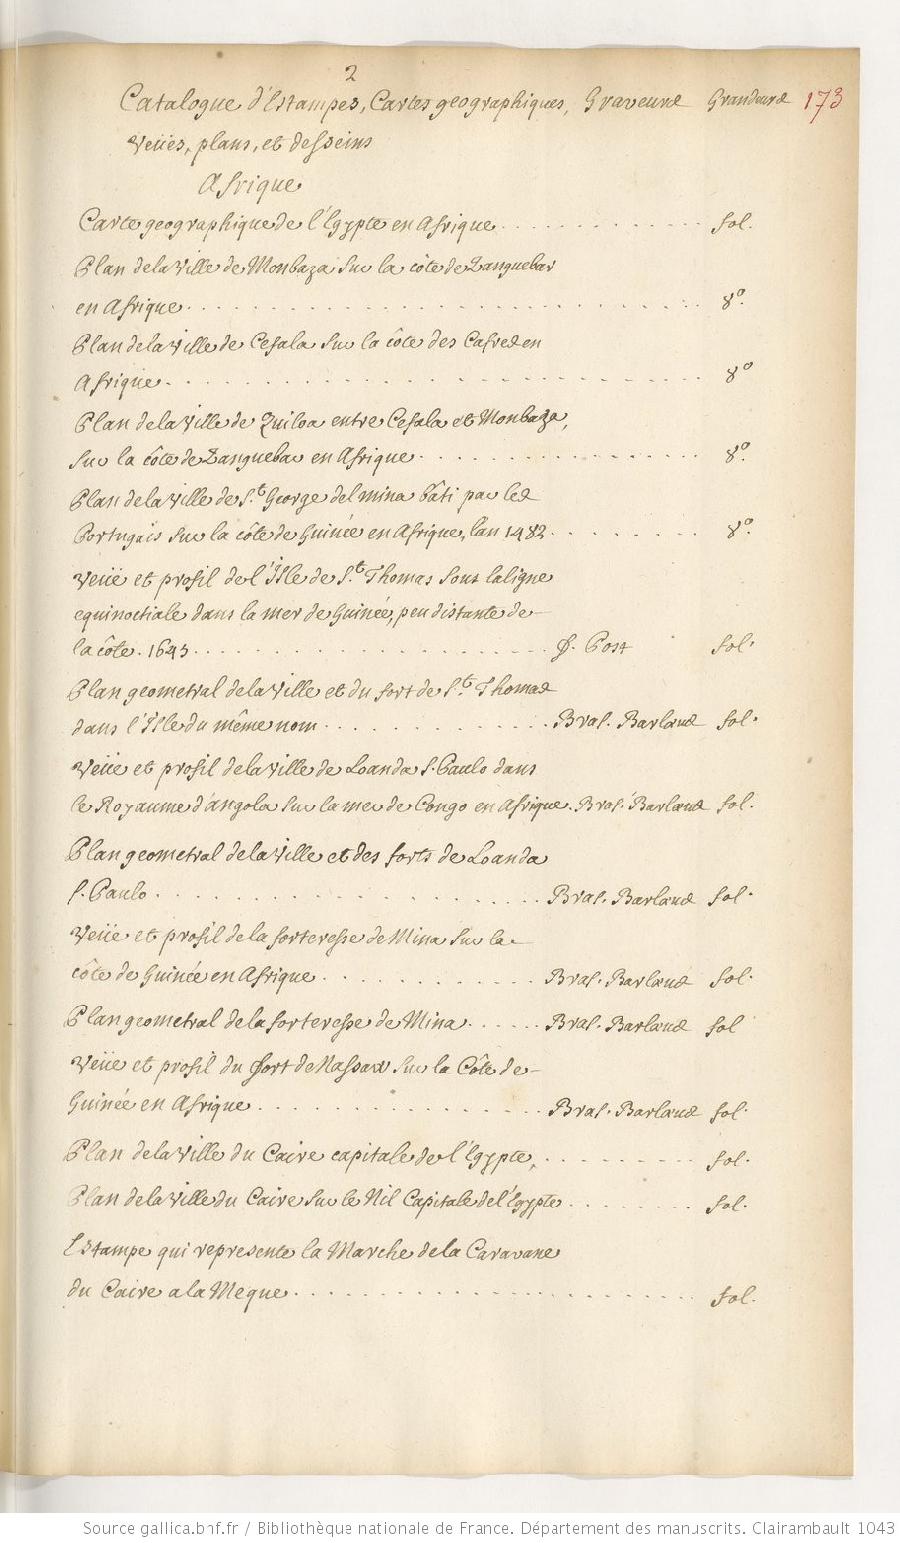 2
Catalogue d'Estampes, Cartes geographiques, Graveurs Grandeurs 173
Veües, plans, et desseins
Afrique
Carte geographique de l'Egypte en Afrique . . . . . . . . . . . fol.
Plan de la Ville de Monbaza sur la côte de Zanguebar
en Afrique . . . . . . . . . . . . . . . . . . . . . . . . . . 8º.
Plan de la Ville de Cefala sur la côte des Cafres en
Afrique . . . . . . . . . . . . . . . . . . . . . . . . . . . 8º
Plan de la Ville de Quiloa entre Cefala et Monbaza,
sur la côte de Zanguebar en Afrique . . . . . . . . . . . . . . 8º.
Plan de la Ville de St. George del mina bâti par les
Portugais sur la côte de Guinée en Afrique, lan 1482 . . . . . . . 8º.
Veüe et profil de l'Isle de St. Thomas sous la ligne
equinoctiale dans la mer de Guinée, peu distante de
la côte. 1645 . . . . . . . . . . . . . . . . . . . f. Post fol.
Plan geometral de la Ville et du fort de St. Thomas
dans l'Isle du même nom . . . . . . . . . . . . Bras. Barlæus fol.
Veüe et profil de la Ville de Loanda S. Paulo dans
le Royaume d'angola sur la mer de Congo en Afrique. Bras. Barlæus fol.
Plan geometral de la Ville et des forts de Loanda
S. Paulo . . . . . . . . . . . . . . . . . . . Bras. Barlæus fol.
Veüe et profil de la forteresse de Mina sur la
côte de Guinée en Afrique . . . . . . . . . . . Bras. Barlæus fol.
Plan geometral de la forteresse de Mina . . . . . . Bras. Barlæus fol
Veüe et profil du fort de Nassau sur la Côte de
Guinée en Afrique . . . . . . . . . . . . . . . Bras. Barlæus fol.
Plan de la Ville du Caire capitale de l'Egypte, . . . . . . . . . fol.
Plan de la Ville du Caire sur le Nil Capitale de l'Egypte . . . . . . . . fol.
Estampe qui represente la Marche de la Caravane
du Caire a la Meque . . . . . . . . . . . . . . . . . . . . . . fol.
Source gallica.bnf.fr / Bibliothèque nationale de France. Département des manuscrits. Clairambault 1043